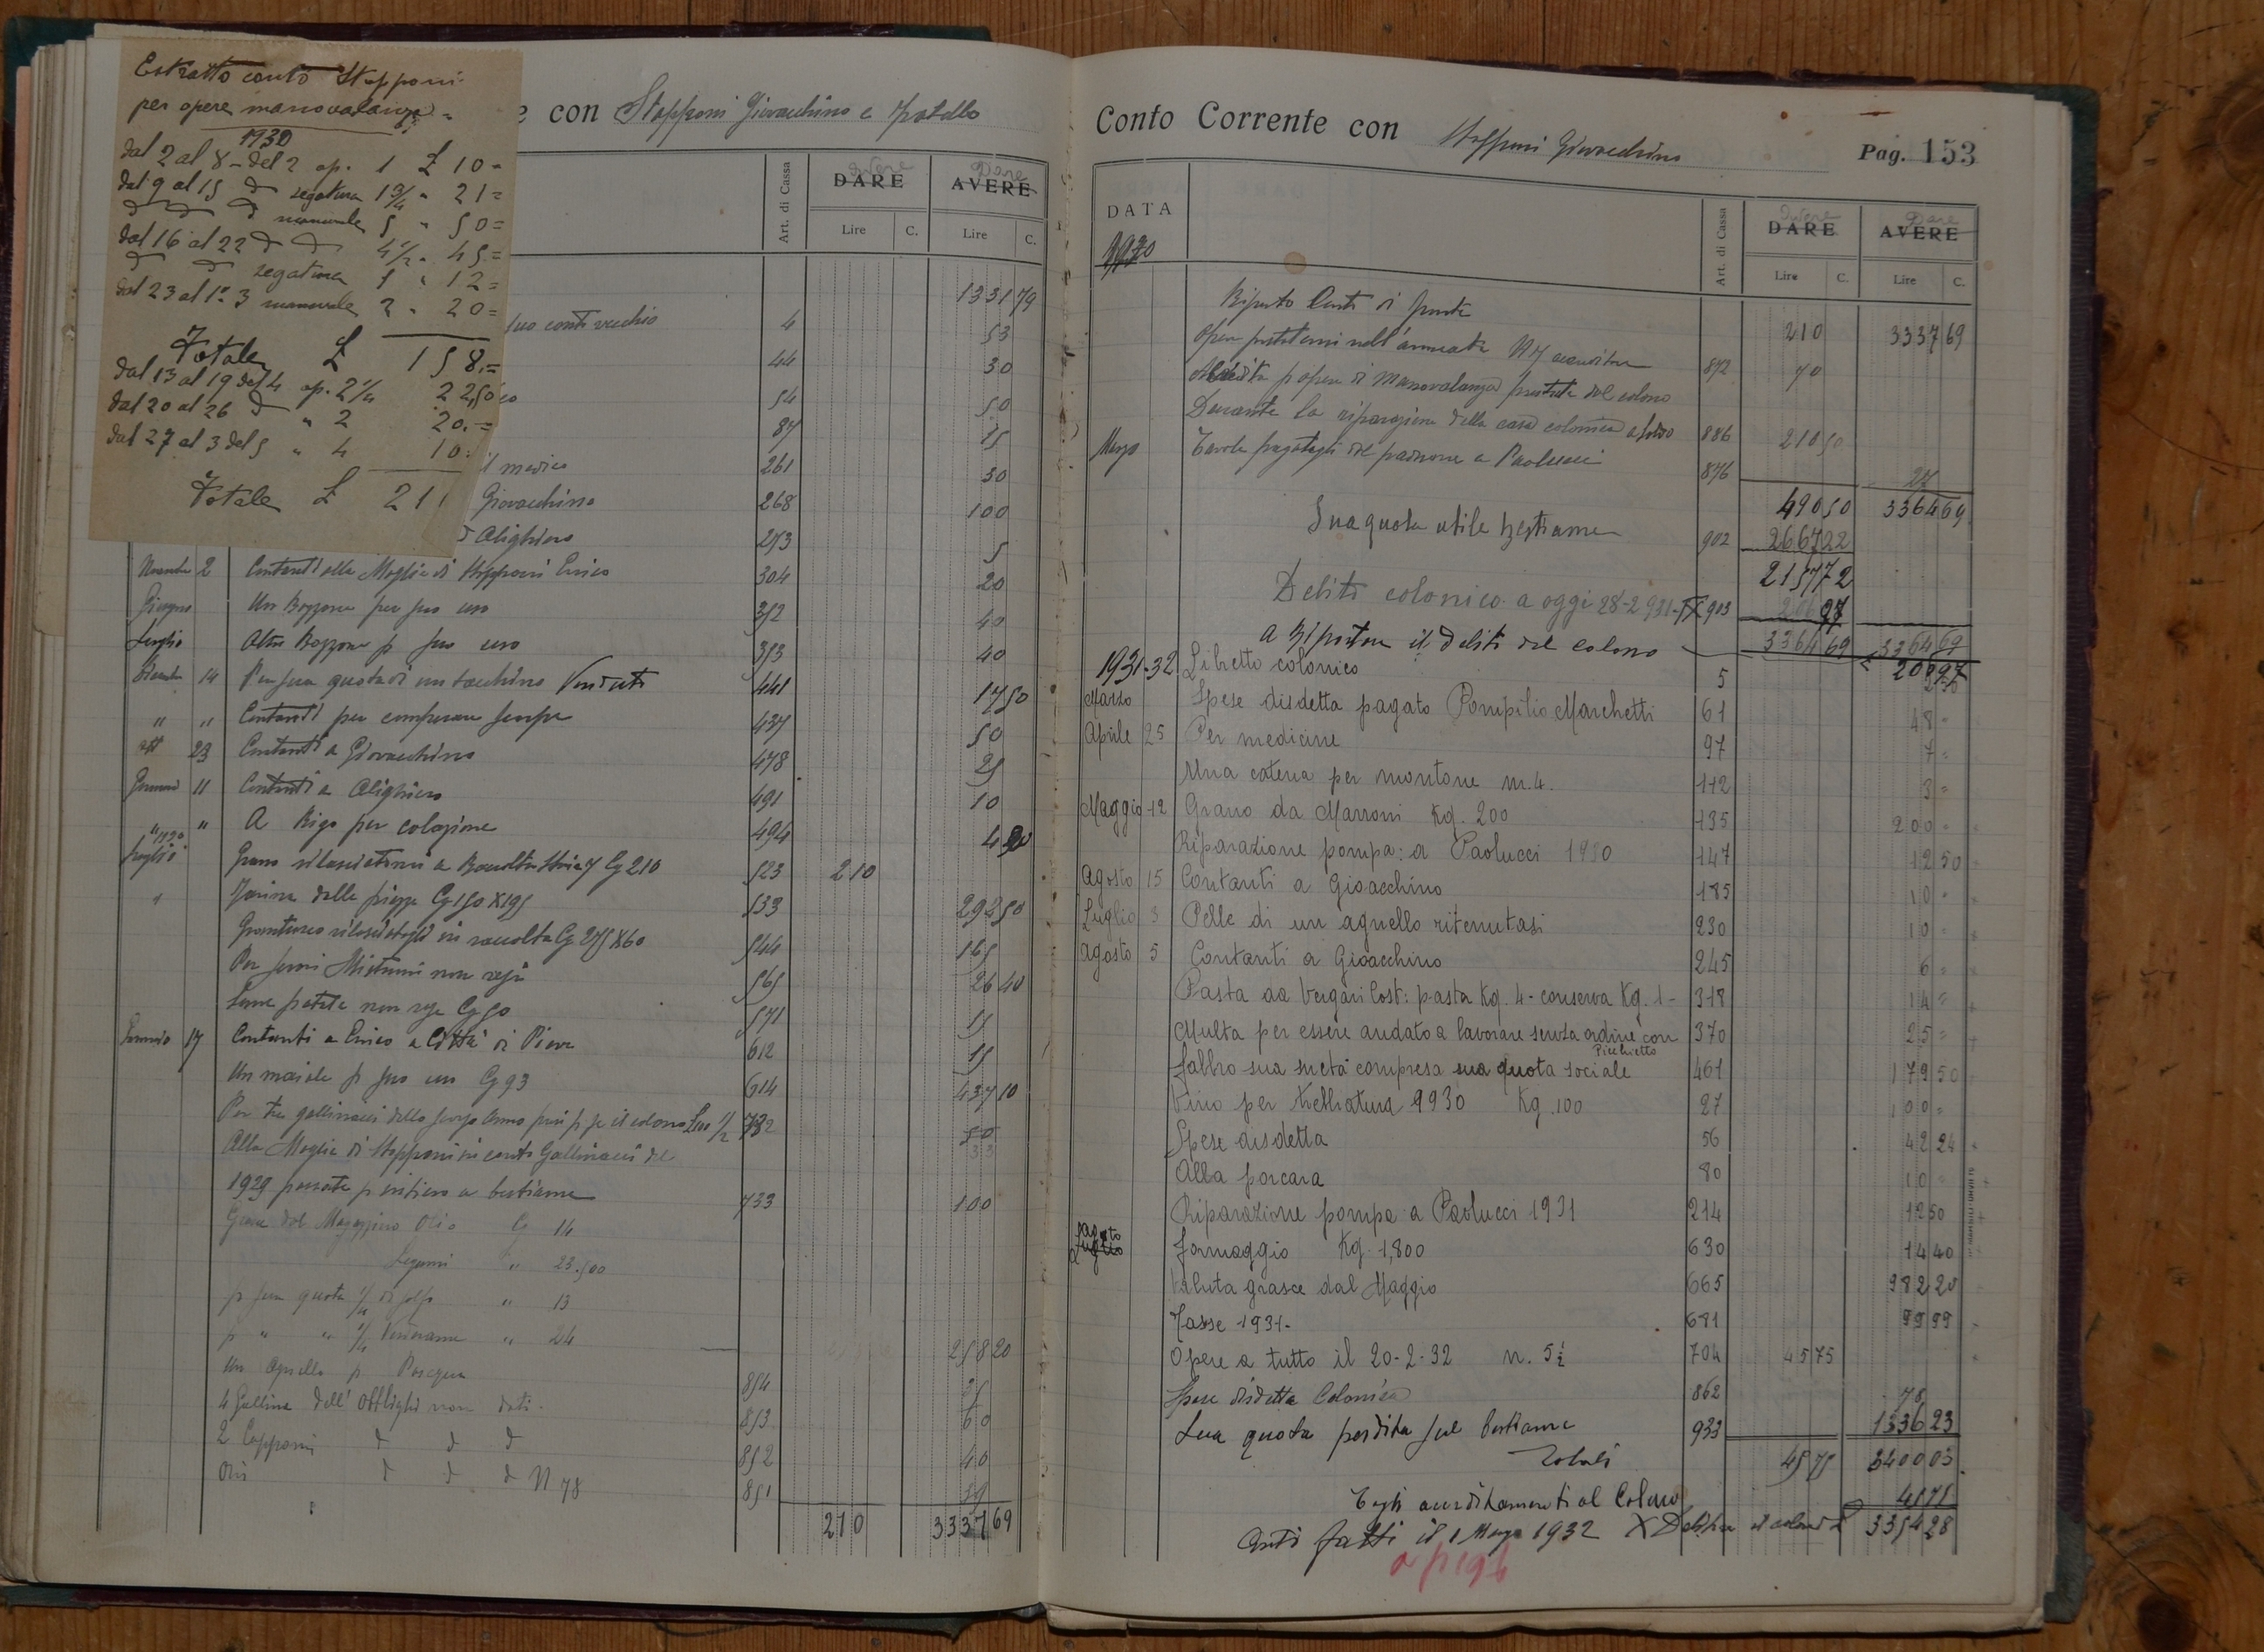 Estratto conto Stopponi
per opere manovalanza =
1930
dal 2 al 8 - del 2 op. 1 £ 10 =
dal 9 al 15 segatura 1 3/4 " 21 =
manuale 5 " 50 =
dal 16 al 22 4 1/2 " 45 =
segatura 1 " 12 =
dal 23 al 1° 3 manuale 2 " 20 =
Totale £ 158.=
dal 13 al 19 del 4 op. 2 1/4 22,50
dal 20 al 26 " 2 20.=
dal 27 al 3 del 5 " 4 10.
Totale £ 211
e con Stopponi Giovacchino e fratello
Art. di Cassa DARE AVERE
Avere Dare
Lire C. Lire C.
1331 79
suo conto vecchio 4 53
44 30
54 50
87 15
il medico 261 30
Giovacchino 268 100
Alighiero 273 5
2 Contanti alla Moglie di Stopponi Enrico 304 20
Giugno Un Bozzone per suo uso 352 40
Luglio Altro Bozzone p suo uso 353 40
14 Per sua quota di un tacchino Venduto 441 17 50
" " Contanti per comperare scarpe 437 50
23 Contanti a Giovacchino 478 25
11 Contanti a Alighiero 491 10
" " A Rigo per colazione 494 4
1930
Luglio Grano rilasciatomi a Raccolta Cg 210 523 210
" Cg 150 X 195 533 292 50
Granturco rilasciatogli in raccolta Cg 275 X 60 544 165
Per semi Mistumi non resi 565 26 40
Seme patate non rese Cg 50 571 15
Gennaio 17 Contanti a Enrico a Città di Pieve 612 15
Un maiale p suo uso Cg 93 614 437 10
Per tre gallinacci dello scorso Anno presi p se il colono 1/2 732 50
Alla Moglie di Stopponi in conto Gallinacci del
1929 passate p intiero a bestiame 733 100
Grasce dal Magazzino Olio Cg 14
Legumi " 23.500
p sua quota 1/4 di solfo " 13
p " " 1/4 Verderame " 24 258 20
Un Agnello p Pasqua 854 25
4 Galline dell' Obblighi non dati - 853 60
2 Capponi d d d 852 40
d d d N 78 851 39
210 3337 69
Conto Corrente con Stopponi Giovacchino Pag. 153
DATA Art. di Cassa DARE AVERE
Avere Dare
Lire C. Lire C.
1930
Riporto Conti di fronte 210 3337 69
Opere prestatemi nell'annata N 7 872 70
p opere di Manovalanza prestate dal colono
Durante la riparazione della casa colonica a tutto 886 210 50
Marzo Tavole pagategli dal padrone a Paolucci 876 27
490 50 3364 69
Sua quota utile bestiame 902 2667 22
2157 72
Debito colonico a oggi 28-2 931-IX 903 206 97
A Riportare il debito del colono 3364 69 3364 69
206 97
1931-32 Libretto colonico 5 2 50
Marzo Spese disdetta pagato Pompilio Marchetti 61 48 =
Aprile 25 Per medicine 97 7 =
Una catena per montone m. 4. 112 3 =
Maggio 12 Grano da Marroni Kg. 200 135 200 =
Riparazione pompa: a Paolucci 1930 147 12 50
Agosto 15 Contanti a Gioacchino 185 10 =
Luglio 3 Pelle di un agnello ritenutasi 230 10 =
Agosto 5 Contanti a Gioacchino 245 6 =
Pasta da Vergari Cost: pasta Kg. 4 - conserva Kg. 1 - 318 14 =
Multa per essere andato a lavorare senza ordine con 370 25 =
Picchietto
Fabbro sua metà compresa sua quota sociale 461 179 50
Vino per trebbiatura 1930 Kg. 100 27 100 =
Spese disdetta 56 42 24
Alla porcara 80 10 =
Riparazione pompa a Paolucci 1931 214 12 50
Agosto
Luglio Formaggio Kg. 1,800 630 14 40
Valuta grasce dal Maggio 665 982 20
Tasse 1931 - 681 99 99
Opere a tutto il 20-2-32 n. 5 1/2 704 45 75
Spese disdetta Colonica 862 78
Sua quota perdita sul bestiame 933 1336 23
Totali 45 75 3400 03
Togli accreditamenti al Colono 45 75
Conti fatti il 1 Marzo 1932 X Debito il colono £ 3354 28
a p 196